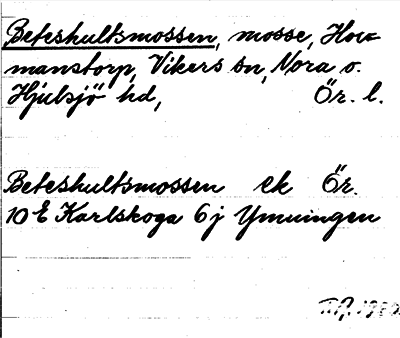 Beteshultsmossen, mosse, How-
manstorp, Vikers sn, Nora o.
Hjulsjö hd, Ör. l.
Beteshultsmossen ek Ör.
10 E Karlskoga 6 j Ymningen
1980